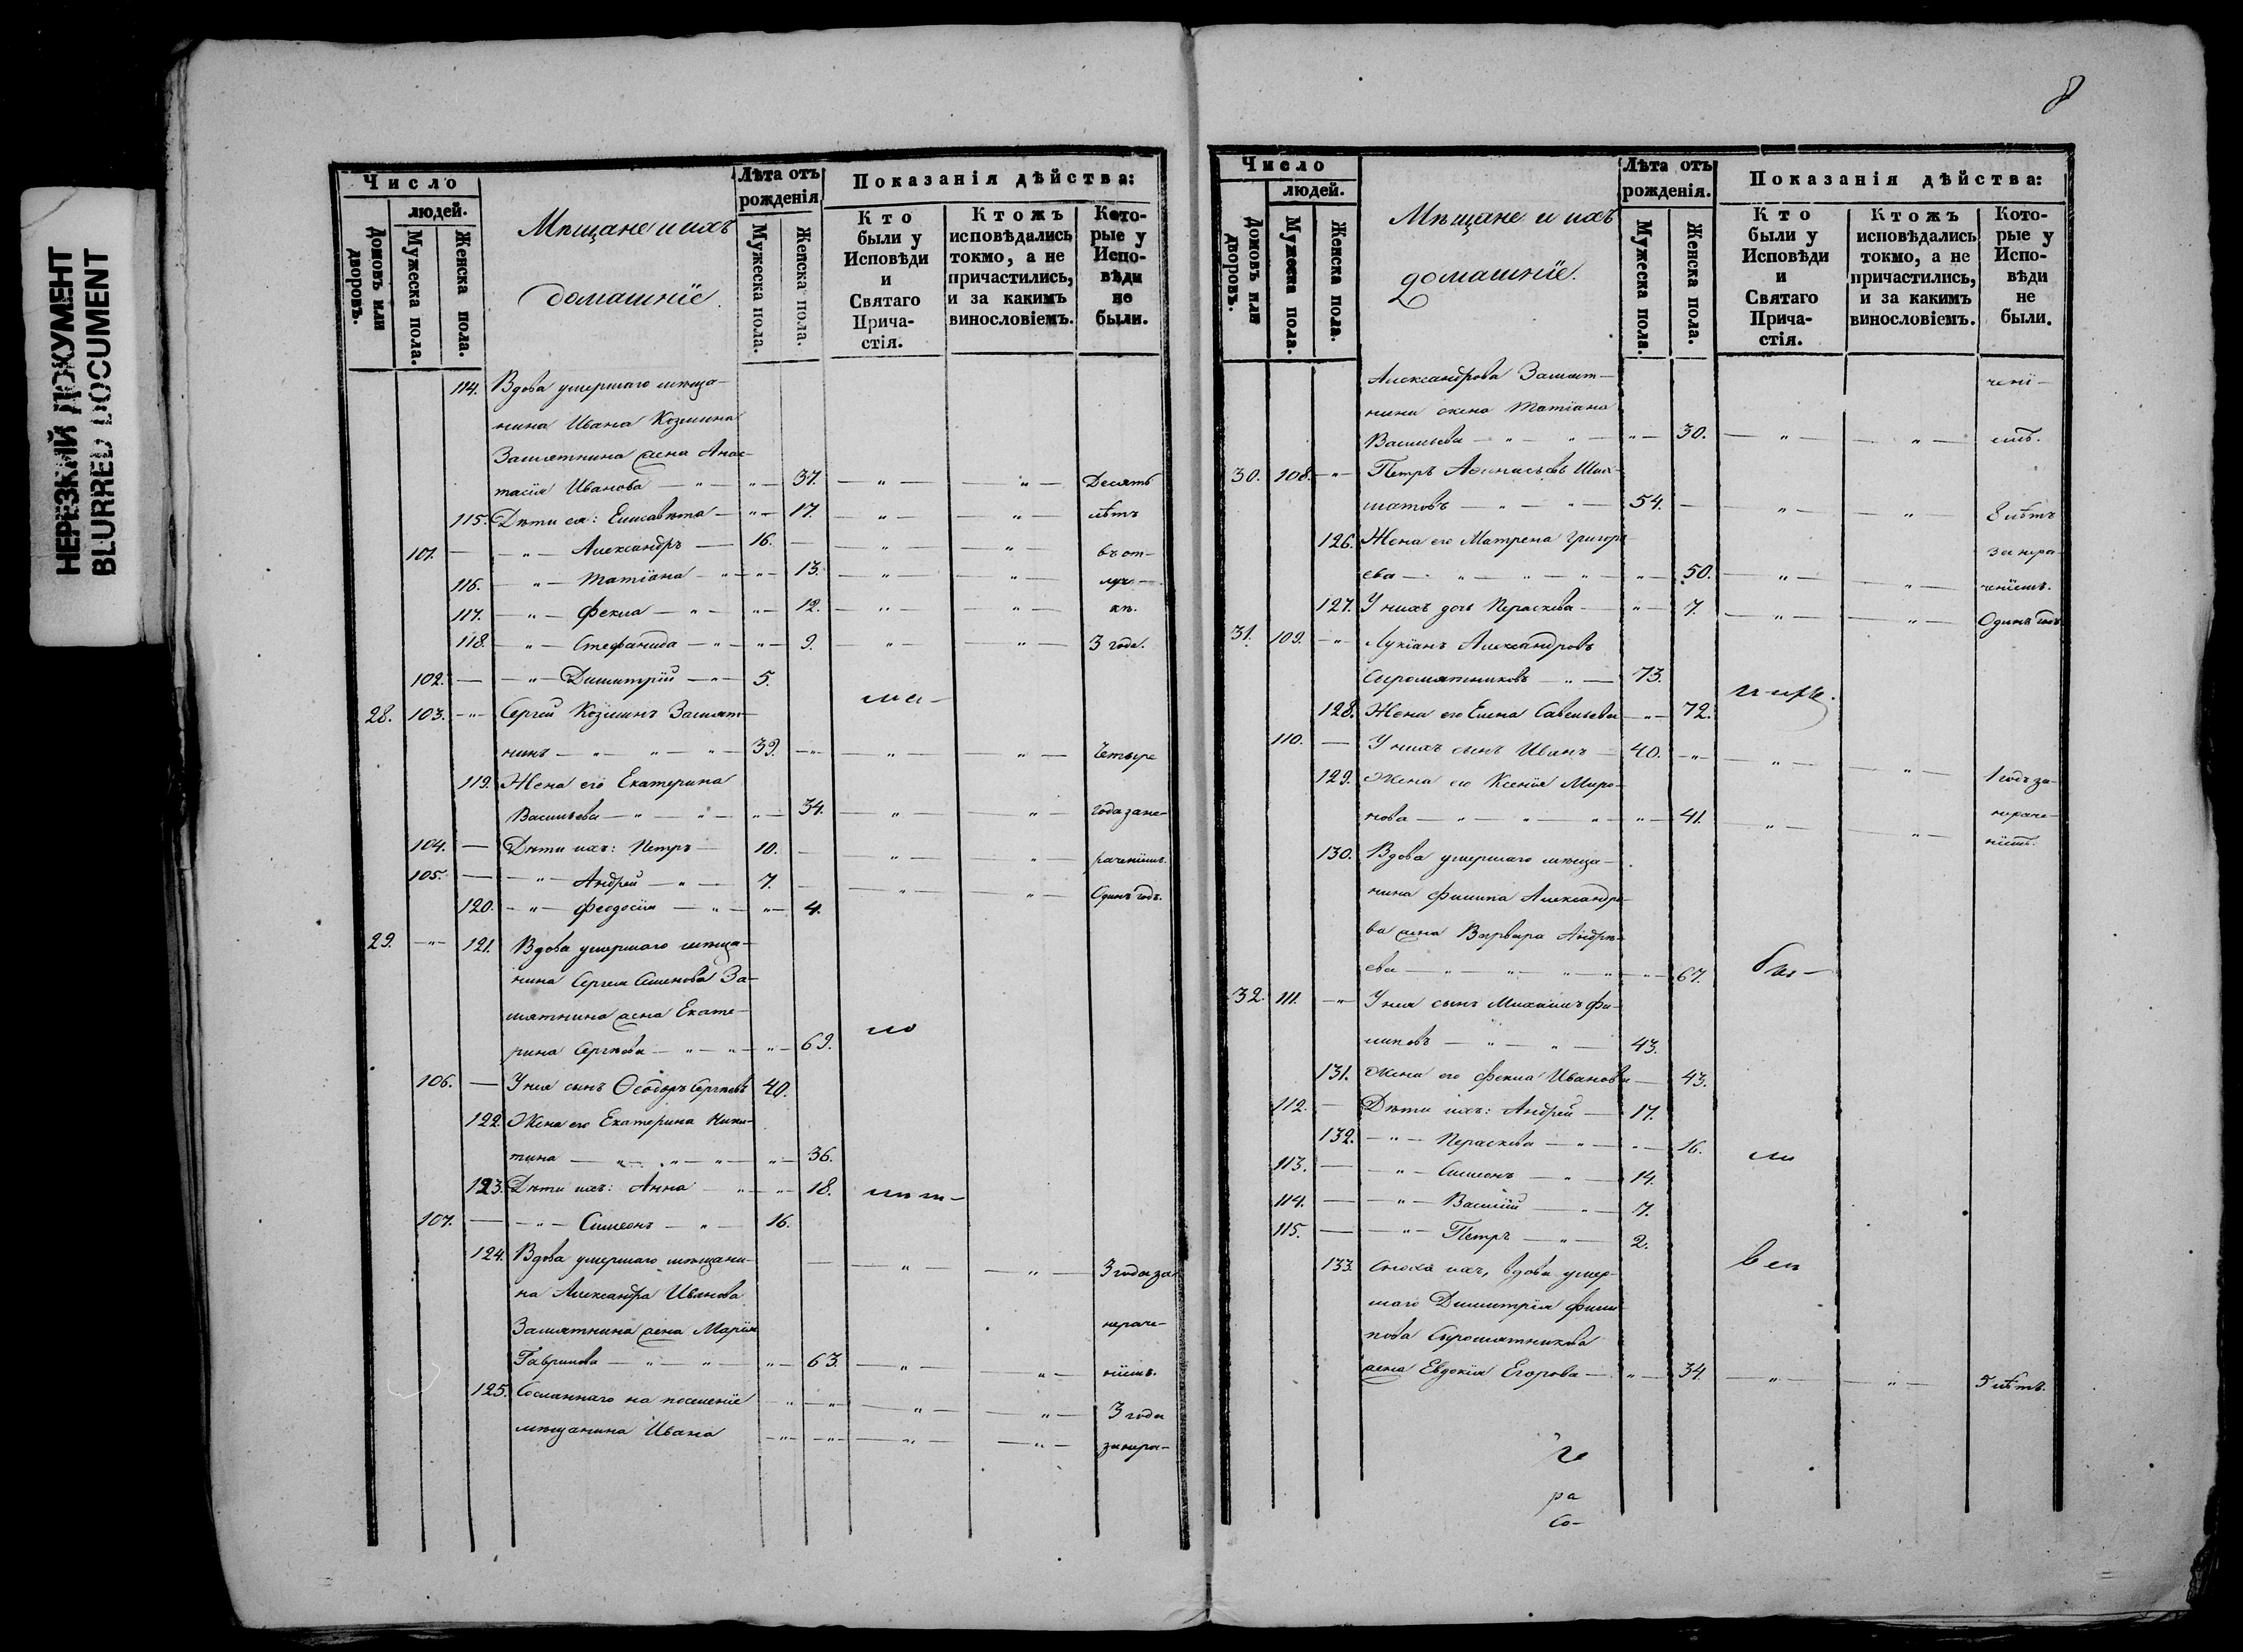 НЕРЕЗКИЙ ДОКУМЕНТ
BLURRED DOCUMENT
Число
людей.
Домовъ или дворовъ.
Мужеска пола.
Женска пола.
Мѣщане и ихъ
домашніе.
Лѣта отъ рожденія
Мужеска пола.
Женска пола.
Показанія дѣйства:
Кто были у Исповѣди и Святаго Прича-стія.
Ктожъ исповѣдались токмо, а не причастились, и за какимъ винословіемъ.
Кото-рые у Испо-вѣди не были.
114. Вдова умершаго мѣща-
нина Ивана Козмина
Замятнина жена Анас-
тасія Иванова — " — " — 37. — " — " — Десять
115. Дѣти ея: Елисавета — " — 17. — " — " — лѣтъ
101. — " — Александръ — 16. — " — " — въ от-
116. — " — Татіана — " — " — 13. — " — " — луч-
117. — " — Фекла — " — " — 12. — " — " — кѣ.
118. — " — Стефанида — " — " — 9. — " — " — 3 года.
102. — " — Димитрій — " — 5.
28. 103. — " — Сергій Козминъ Замят-
нинъ — " — " — " — 39. — " — " — " — Четыре
119. Жена его Екатерина
Васильева — " — " — " — 34. — " — " — года за не-
104. — Дѣти ихъ: Петръ — 10. — " — " — раченіемъ.
105. — " — Андрей — " — 7. — " — " — Одинъ годъ.
120. — " — Феодосія — " — " — 4.
29. — " — 121. Вдова умершаго мѣща-
нина Сергія Семенова За-
мятнина жена Екате-
рина Сергѣева — " — " — " — 69.
106. — У нея сынъ Ѳеодоръ Сергѣевъ 40.
122. Жена его Екатерина Ники-
тина — " — " — " — " — 36.
123. Дѣти ихъ: Анна — " — " — 18.
107. — " — Симеонъ — " — 16.
124. Вдова умершаго мѣщани- — " — " — 3 года за
на Александра Иванова
Замятнина жена Марія нераче-
Гаврилова — " — " — " — 63. — " — " — ніемъ.
125. Сосланнаго на поселеніе — " — " — " — " — 3 года
мѣщанина Ивана — " — " — " — " — за нера-
8
Число
людей.
Домовъ или дворовъ.
Мужеска пола.
Женска пола.
Мѣщане и ихъ
домашніе.
Лѣта отъ рожденія.
Мужеска пола.
Женска пола.
Показанія дѣйства:
Кто были у Исповѣди и Святаго Прича-стія.
Ктожъ исповѣдались токмо, а не причастились, и за какимъ винословіемъ.
Кото-рые у Испо-вѣди не были.
Александрова Замят- чені-
нина жена Татіана
Васильева — " — " — " — 30. — " — " — емъ.
30. 108. — " — Петръ
матовъ — " — " — 54. — " — " — 8 лѣтъ
126. Жена его Матрена Григорь за нера-
ева — " — " — " — " — 50. — " — " — ченіемъ.
127. У нихъ дочь Параскева — " — 7. — " — " — Одинъ годъ
31. 109. — " — Лукіанъ Александровъ
Сыромятниковъ — " — 73.
128. Жена его Елена Савельева — " — 72.
110. — У нихъ сынъ Иванъ — 40. — " — " — " — 1 годъ за-
129. Жена его Ксенія Миро-
нова — " — " — " — " — 41. — " — " — нераче-
ніемъ.
130. Вдова умершаго мѣща-
нина Филипа Александро-
ва жена Варвара Андре-
ева — " — " — " — " — 67.
32. 111. — " — У нея сынъ Михаилъ Фи-
липовъ — " — " — 43.
131. Жена его Фекла Иванова — 43.
112. — Дѣти ихъ: Андрей — 17.
132. — " — Параскева — " — " — 16.
113. — " — Симеонъ — " — 14.
114. — " — Василій — " — 7.
115. — " — Петръ — " — 2.
133. Сноха ихъ, вдова умер-
шаго Димитрія Фили-
пова Сыромятникова
жена Евдокія Егорова — " — 34. — " — " — 5 лѣтъ.
ра
Со-